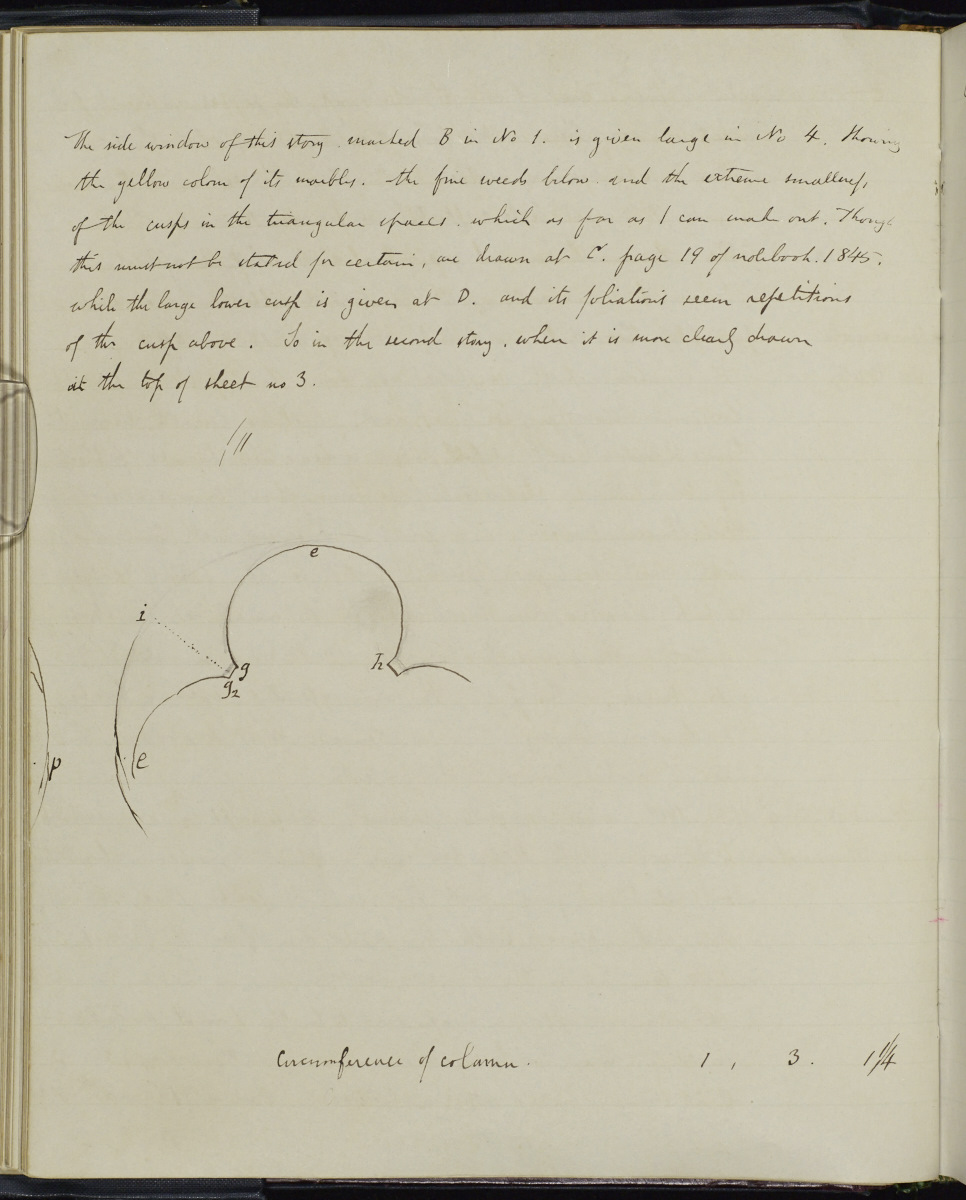 The side window of this story. marked B in No 1. is given large in No 4. showing
the yellow colour of its marbles. the fine weeds below. and the extreme smallness,
of the cusps in the triangular spaces. which as far as I can make out. Though
this must not be stated for certain, are drawn at C. page 19 of notebook. 1845.
while the large lower cusp is given at D. and its foliations seem repetitions
of the cusp above. So in the second story. when it is more clearly drawn
at the top of sheet no 3.
e
i
g
h
g2
e
p
Circumference of column. 1, 3. 1 1/4